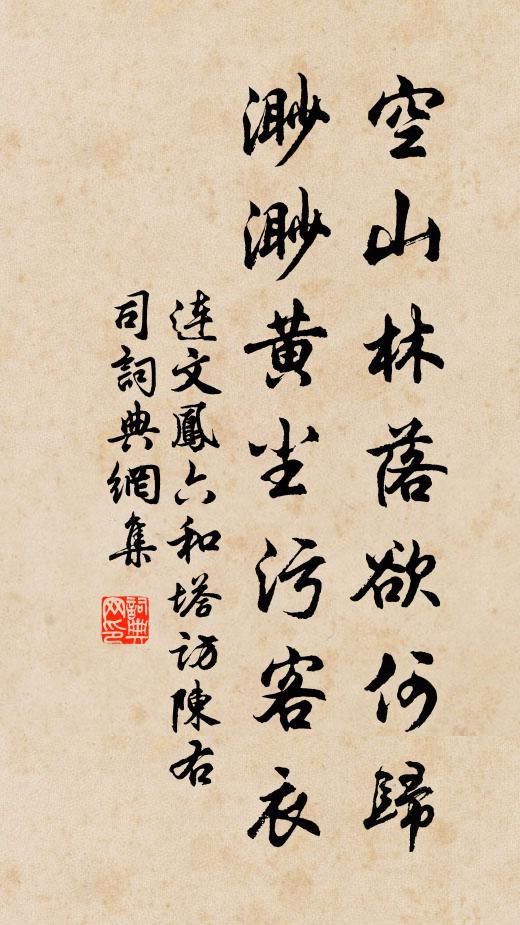 空山林落欲何歸
渺渺黄尘污客衣
连文鳳六和塔访陳右
司詞典網集
詞典
网印